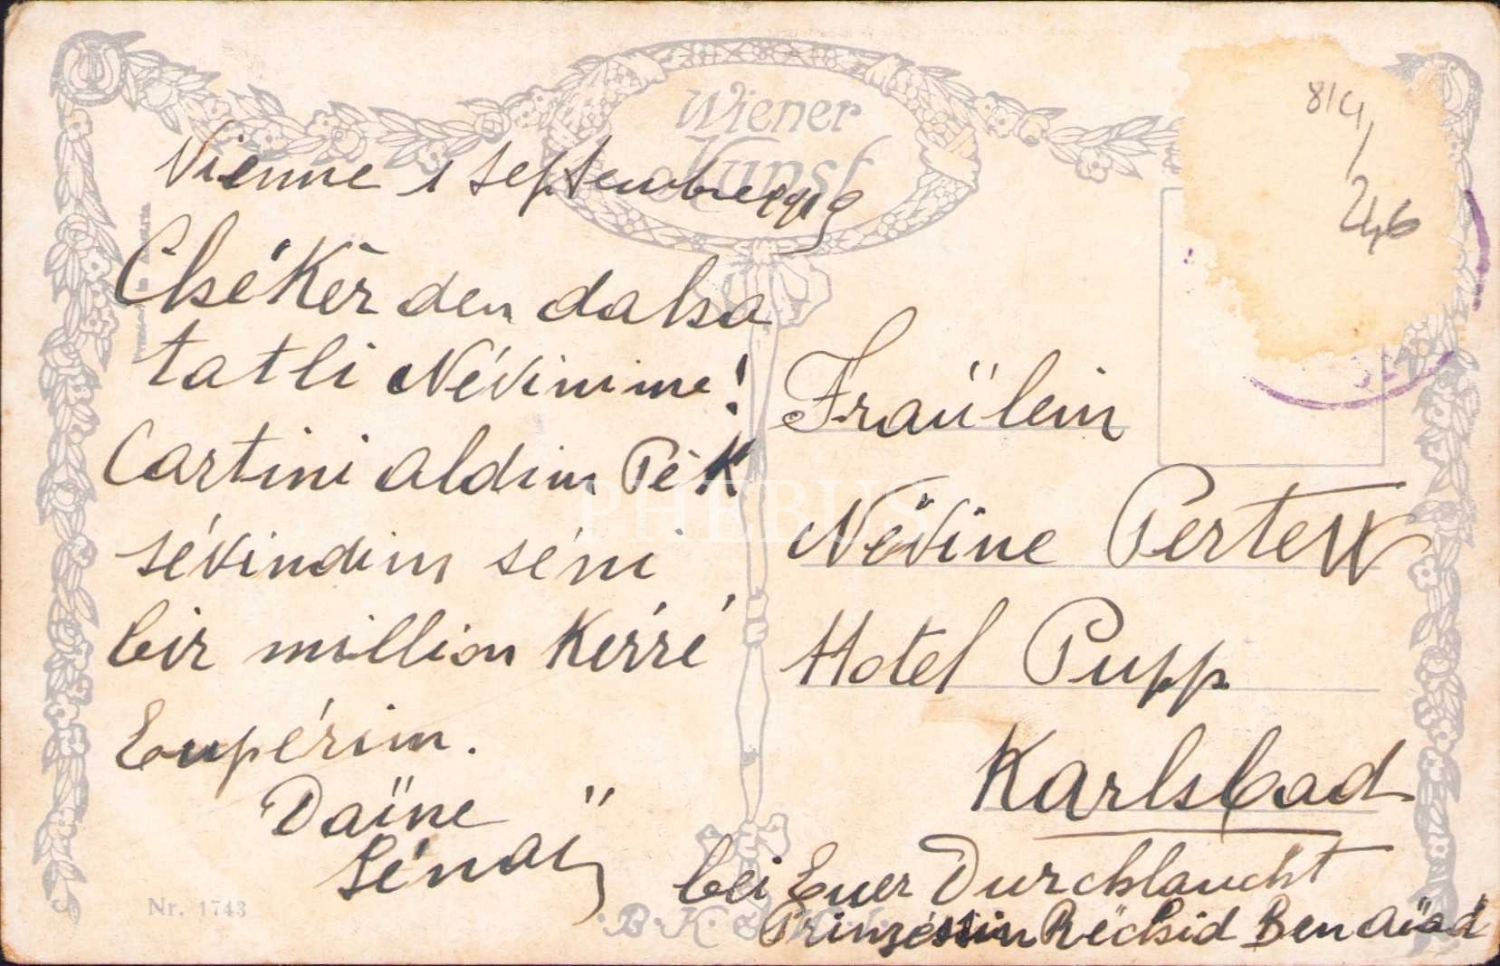 Wiener
Kunst
Vienne 1 Septembre 1919
Chsékèr den daha
tatli Névinime!
Cartini aldim Pék
sévindim séni
bir million Kérré
Eupérim.
Daïne
Sénaï
Nr. 1743
814/
246
Fraülein
Névine Pertew
Hotel Pupp
Karlsbad
bei Euer Durchlaucht
Prinzéssin Réchid Ben Aïad
B.K.
PHEBUS